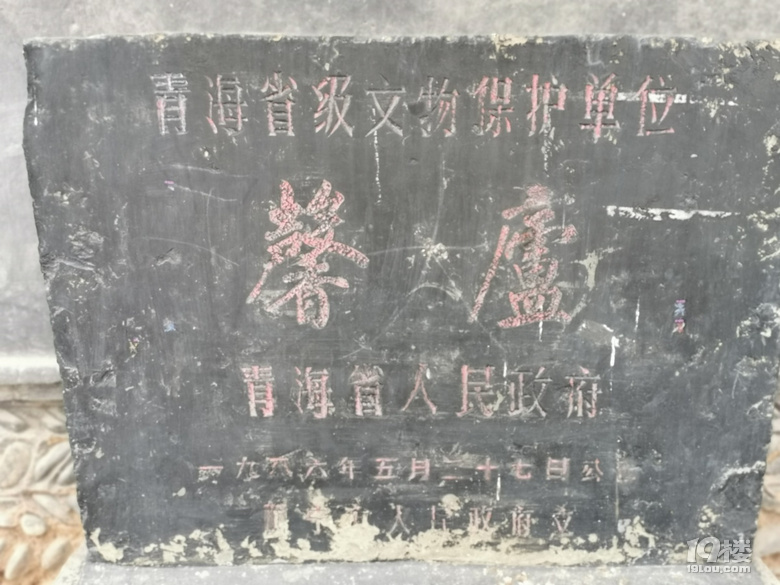 青海省级文物保护单位
馨廬
青海省人民政府
一九八六年五月二十七日公
人民政府立
19楼
19lou.com